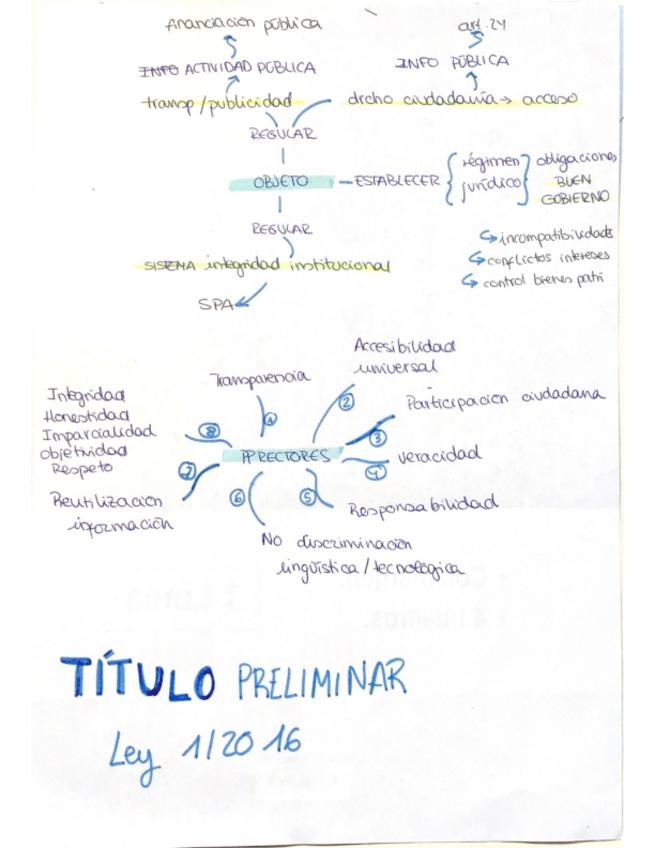 financiación pública
art. 24
INFO ACTIVIDAD PÚBLICA
INFO PÚBLICA
transp/publicidad
drcho ciudadanía → acceso
REGULAR
OBJETO — ESTABLECER { régimen jurídico } obligaciones BUEN GOBIERNO
REGULAR
SISEMA integridad institucional
SPA
↳ incompatibilidads
↳ conflictos intereses
↳ control bienes patri
Transparencia
Accesibilidad
universal
Participación ciudadana
Integridad
Honestidad
Imparcialidad
objetividad
Respeto
1
2
3
8
PP RECTORES
veracidad
4
7
6
5
Reutilización
información
Responsabilidad
No discriminación
lingüística/tecnológica
TÍTULO PRELIMINAR
Ley 1/2016